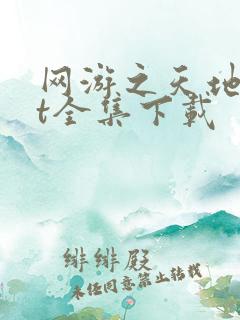 网游之天地
t全集下载
绯绯殿
未经同意禁止转载